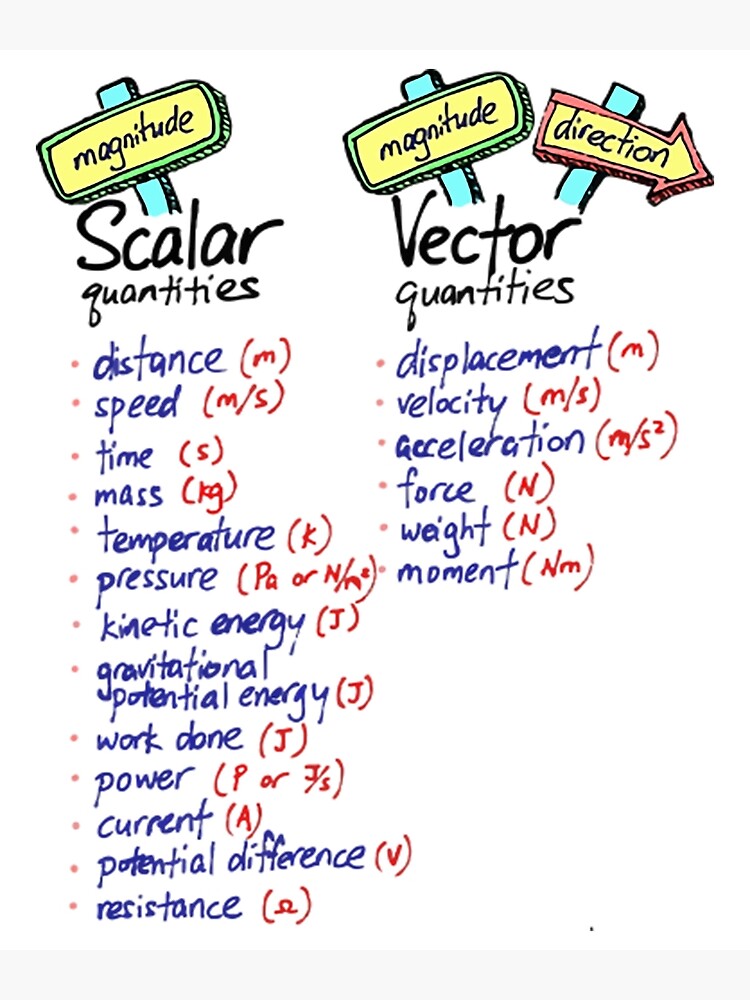 magnitude
Scalar
quantities
• distance (m)
• speed (m/s)
• time (s)
• mass (kg)
• temperature (K)
• pressure (Pa or N/m²)
• kinetic energy (J)
• gravitational
potential energy (J)
• work done (J)
• power (P or J/s)
• current (A)
• potential difference (V)
• resistance (Ω)
magnitude
direction
Vector
quantities
• displacement (m)
• velocity (m/s)
• acceleration (m/s²)
• force (N)
• weight (N)
• moment (Nm)